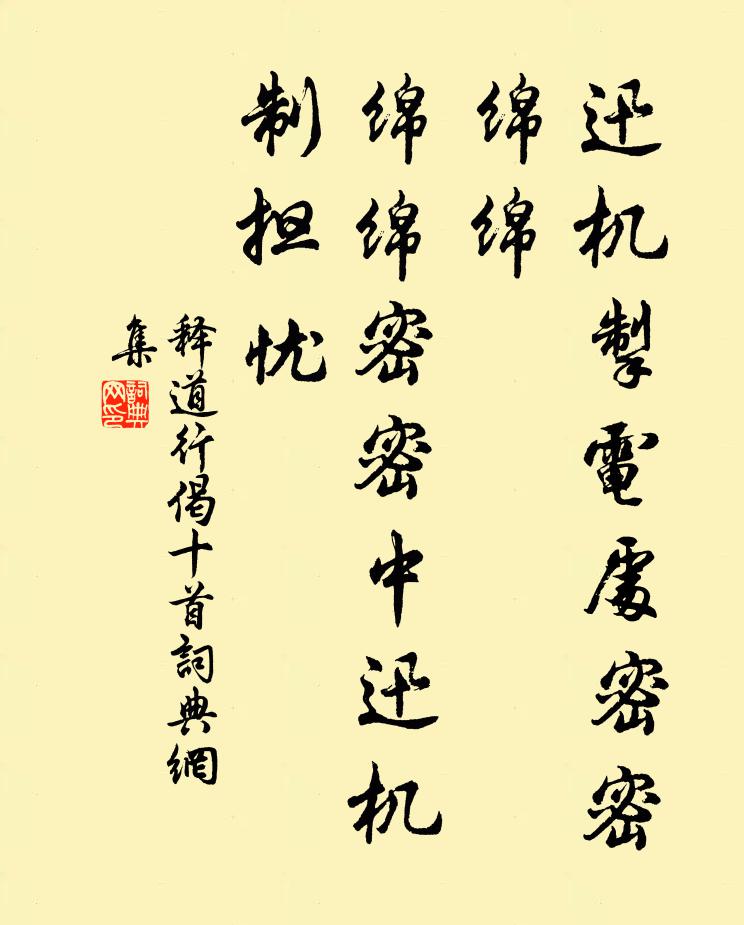 迅机掣電處密密
绵绵
绵绵密密中迅机
制担忧
释道行偈十首詞典網
集
詞典
网印